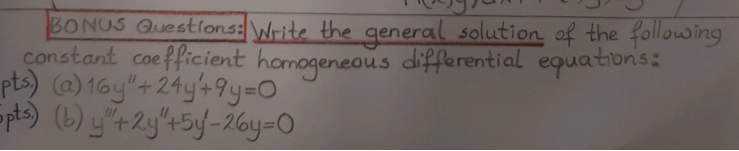 BONUS Questions: Write the general solution of the following
constant coefficient homogeneous differential equations:
pts.) (a) 16y"+24y'+9y=0
pts.) (b) y'''+2y"+5y'-26y=0